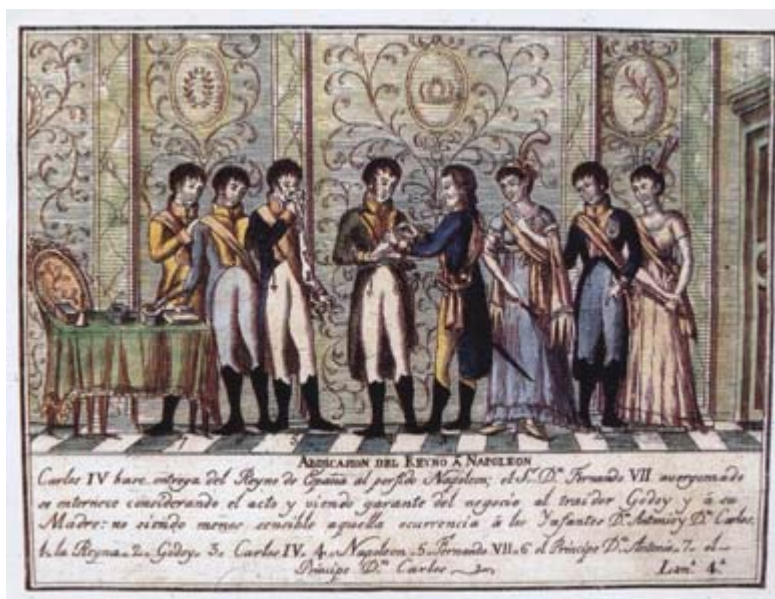 ABDICASION DEL REYNO Á NAPOLEON
Carlos IV hace entrega del Reyno de España al perfido Napoleon; el S.r D.n Fernando VII avergonzado
se enternece considerando el acto y viendo garante del negocio al traidor Godoy y á su
Madre: no siendo menos sensible aquella ocurrencia á los Ynfantes D.n Antonio y D.n Carlos.
1. la Reyna. 2. Godoy. 3. Carlos IV. 4. Napoleon. 5. Fernando VII. 6 el Principe D.n Antonio. 7. el
Principe D.n Carlos
Lam.ª 4.ª